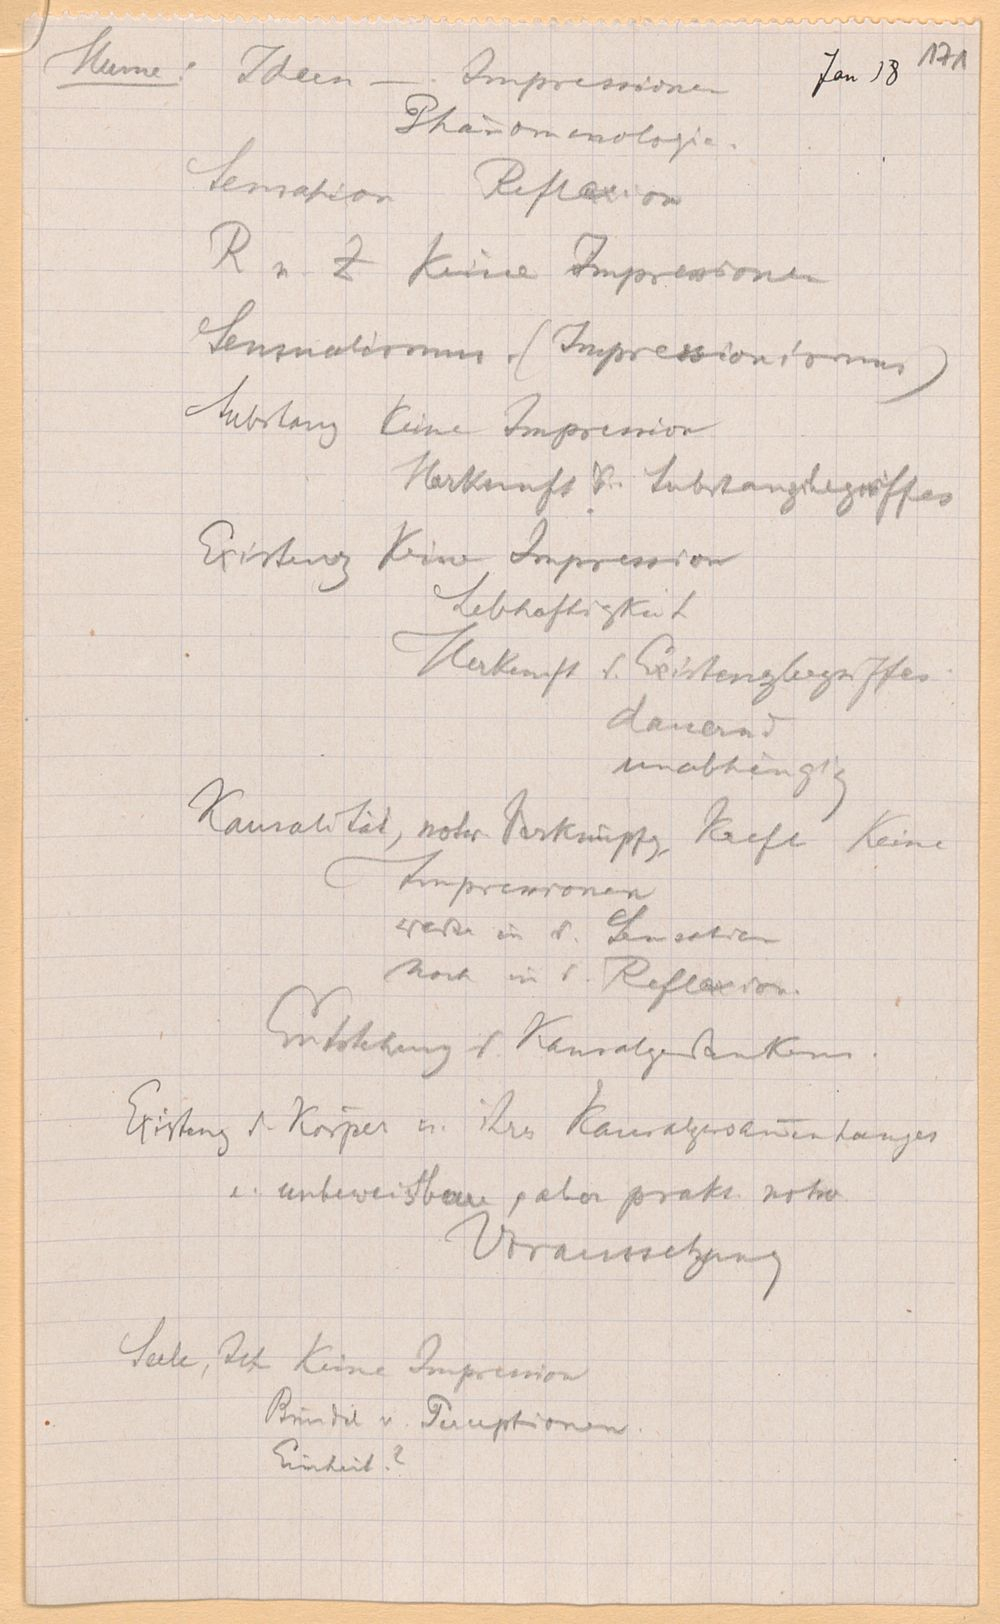 Hume: Ideen — Impressionen Jan 18 171
Phänomenologie.
Sensation Reflexion
R u. Z keine Impressionen
Sensualismus. (Impressionismus)
Substanz keine Impression
Herkunft d. Substanzbegriffes
Existenz keine Impression
Lebhaftigkeit
Herkunft d. Existenzbegriffes
dauernd
unabhängig
Kausalität, notw. Verknüpfg, Kraft keine
Impressionen
weder in d. Sensation
noch in d. Reflexion.
Entstehung d. Kausalgedankens.
Existenz d. Körper u. ihres Kausalzusam̄enhanges
e. unbeweisbare, aber prakt. notw
Voraussetzung
Seele, Ich keine Impression
Bündel v. Perceptionen.
Einheit?